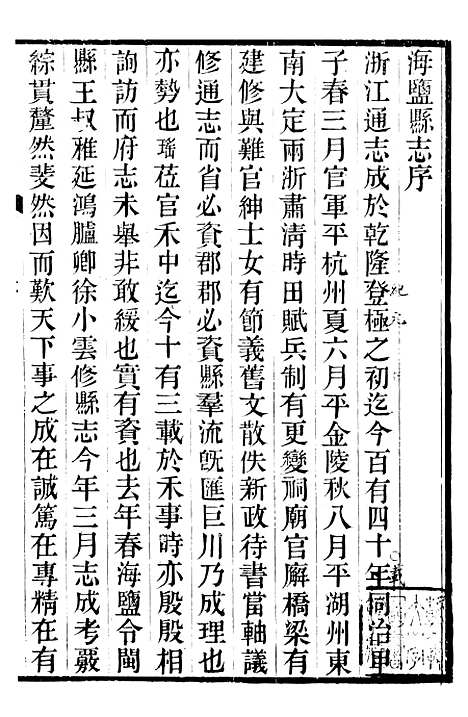 海鹽縣志序
浙江通志成於乾隆登極之初迄今百有四十年同治甲
子春三月官軍平杭州夏六月平金陵秋八月平湖州東
南大定兩浙肅清時田賦兵制有更變祠廟官廨橋梁有
建修與難官紳士女有節義舊文散佚新政待書當軸議
修通志而省必資郡郡必資縣羣流旣匯巨川乃成理也
亦勢也瑤莅官禾中迄今十有三載於禾事時亦殷殷相
詢訪而府志未舉非敢緩也實有資也去年春海鹽令閩
縣王叔雅延鴻臚卿徐小雲修縣志今年三月志成考覈
綜貫釐然斐然因而歎天下事之成在誠篤在專精在有